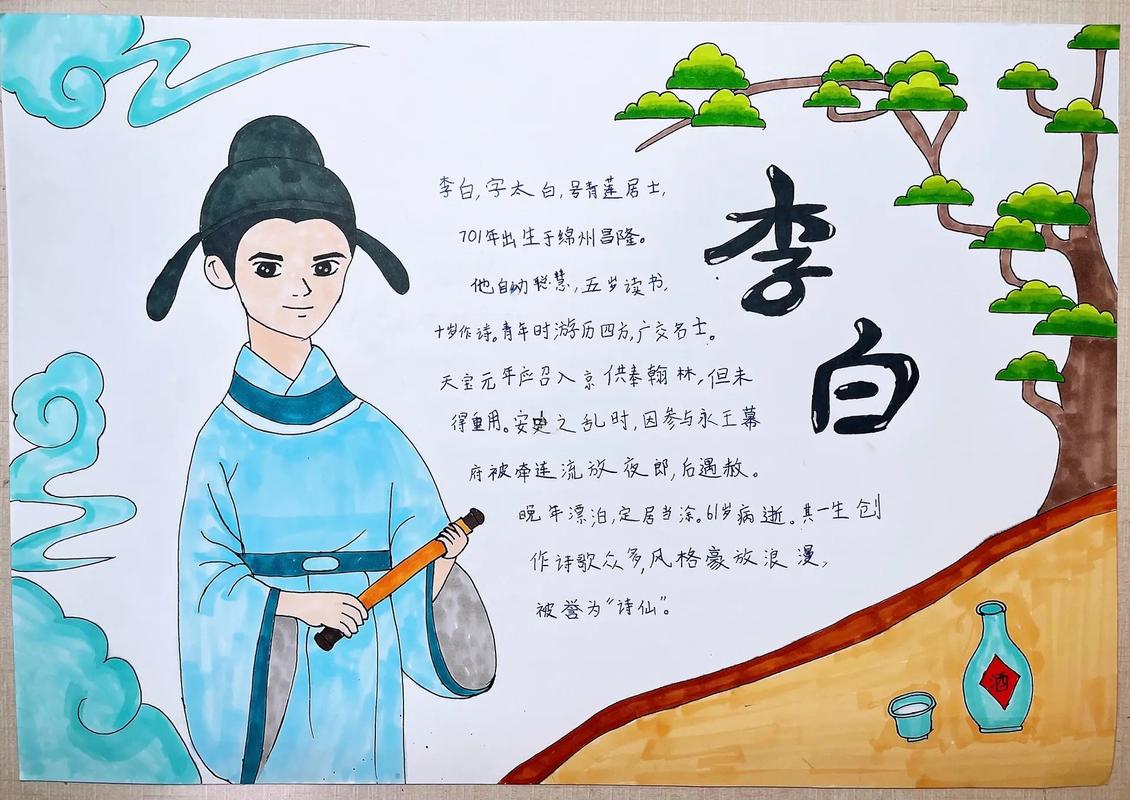 李白
李白,字太白,号青莲居士,
701年出生于绵州昌隆。
他自幼聪慧,五岁读书,
十岁作诗。青年时游历四方,广交名士。
天宝元年应召入京供奉翰林,但未
得重用。安史之乱时,因参与永王幕
府被牵连流放夜郎,后遇赦。
晚年漂泊,定居当涂。61岁病逝。其一生创
作诗歌众多,风格豪放浪漫,
被誉为“诗仙”。
酒